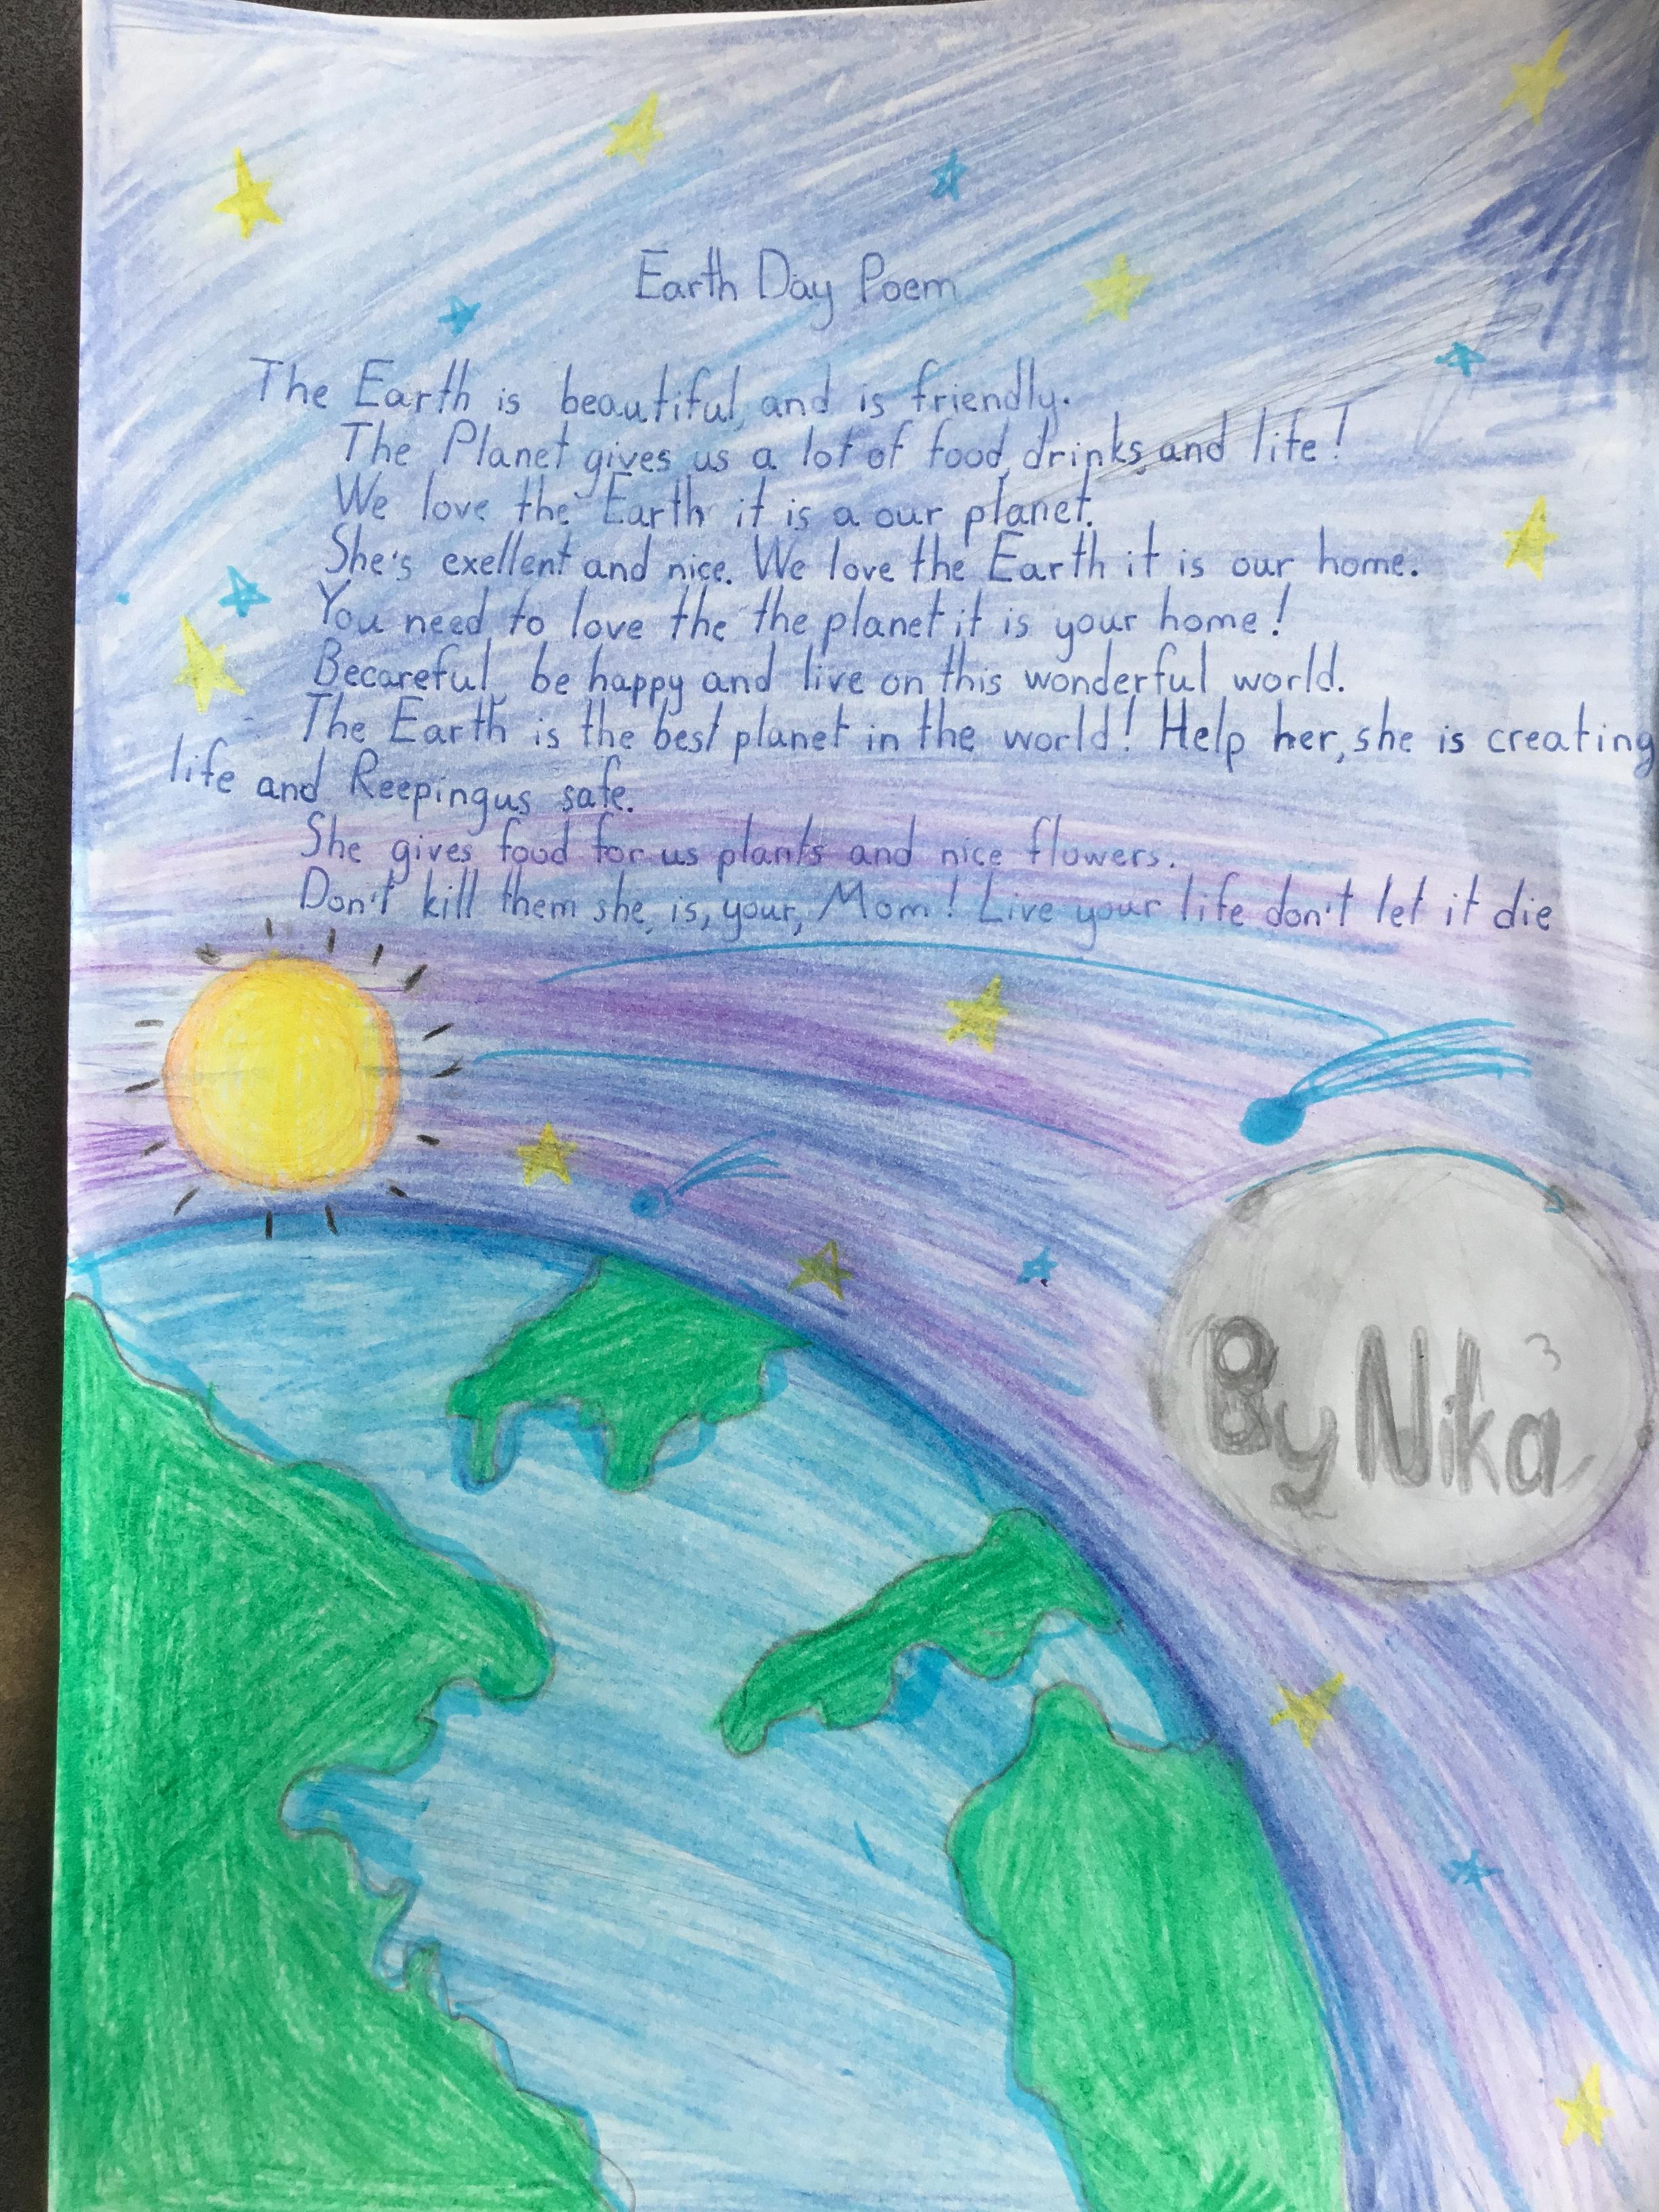 Earth Day Poem
The Earth is beautiful, and is friendly.
The Planet gives us a lot of food, drinks, and life!
We love the Earth it is a our planet.
She's exellent and nice. We love the Earth it is our home.
You need to love the the planet it is your home!
Becareful, be happy and live on this wonderful world.
The Earth is the best planet in the world! Help her, she is creating
life and Reepingus safe.
She gives food for us plants and nice flowers.
Don't kill them she, is, your, Mom! Live your life don't let it die
By Nika